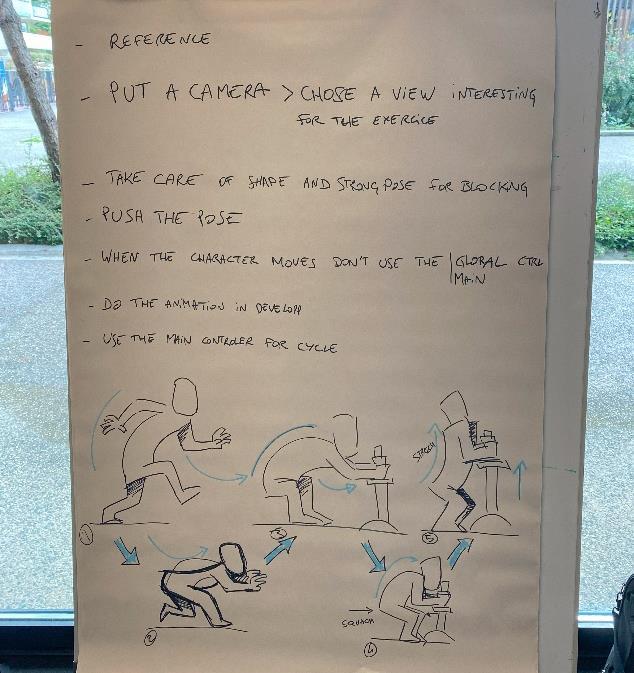 - REFERENCE
- PUT A CAMERA > CHOSE A VIEW INTERESTING
FOR THE EXERCICE
- TAKE CARE OF SHAPE AND STRONG POSE FOR BLOCKING
- PUSH THE POSE
- WHEN THE CHARACTER MOVES DON'T USE THE | GLOBAL CTRL
MAIN
- DO THE ANIMATION IN DEVELOPP
- USE THE MAIN CONTROLER FOR CYCLE
STRECH
1
3
5
2
SQUASH
4